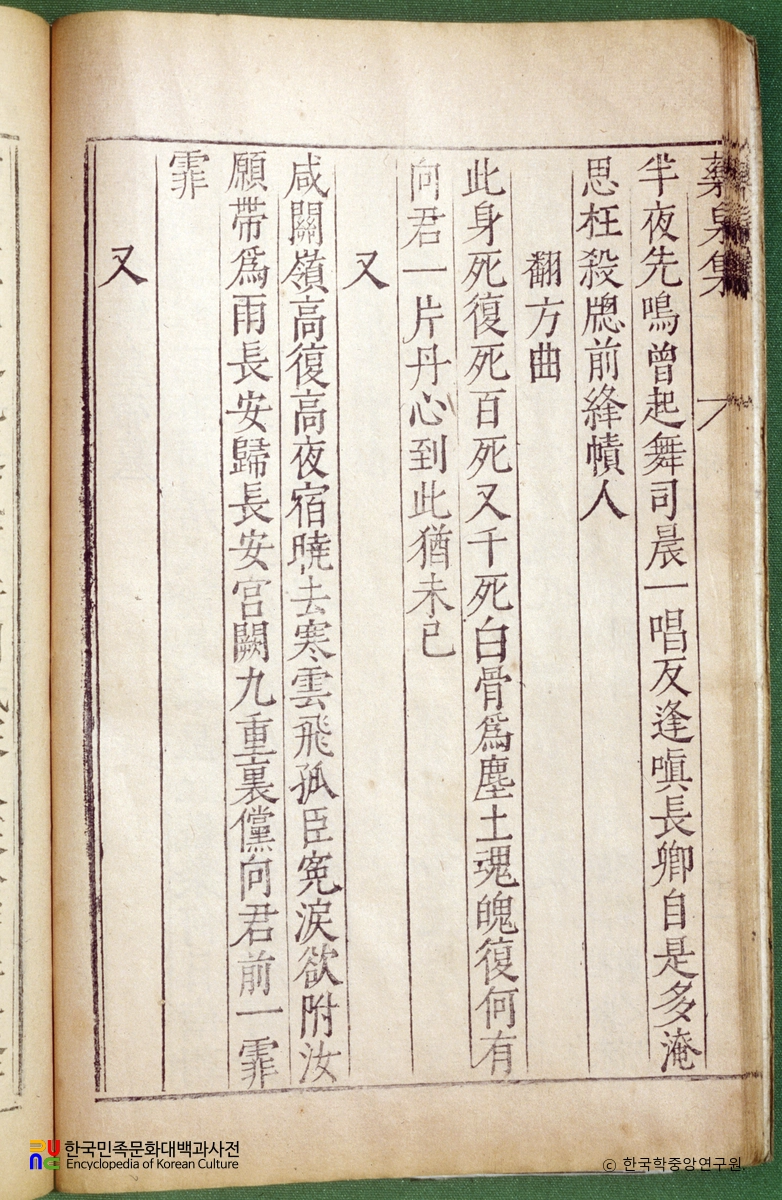 藥泉集
半夜先鳴曾起舞司晨一唱反逢嗔長卿自是多淹
思枉殺牕前絳幘人
翻方曲
此身死復死百死又千死白骨爲塵土魂魄復何有
向君一片丹心到此猶未已
又
咸關嶺高復高夜宿曉去寒雲飛孤臣寃淚欲附汝
願帶爲雨長安歸長安宮闕九重裏儻向君前一霏
霏
又
한국민족문화대백과사전
Encyclopedia of Korean Culture
ⓒ 한국학중앙연구원